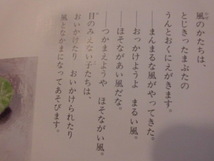 風のかたちは、
とじきったまぶたの
うんとおくにえがきます。
まんまるな風がやってきた。
――おっかけようよ　まるい風。
ほそながあい風だな。
――つかまえようや　ほそながい風。
目のみえない子たちは、
おいかけたり　おいかけられたり
風となかまになってあそびます。